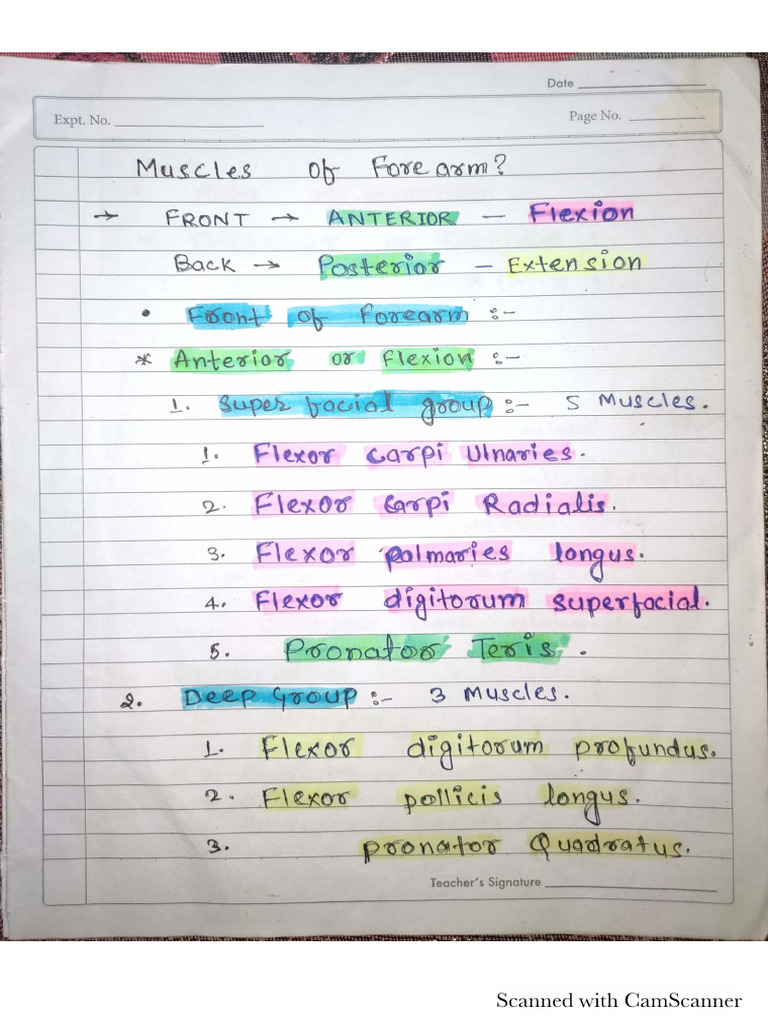 Date
Expt. No.
Page No.
Muscles of Forearm?
→ FRONT → ANTERIOR – Flexion
Back → Posterior – Extension
• Front of Forearm :-
* Anterior or Flexion :-
1. Super facial group :- 5 Muscles.
1. Flexor Carpi Ulnaries.
2. Flexor Carpi Radialis.
3. Flexor palmaries longus.
4. Flexor digitorum superfacial.
5. Pronator Teris.
2. Deep Group :- 3 Muscles.
1. Flexor digitorum profundus.
2. Flexor pollicis longus.
3. pronator Quadratus.
Teacher's Signature
Scanned with CamScanner